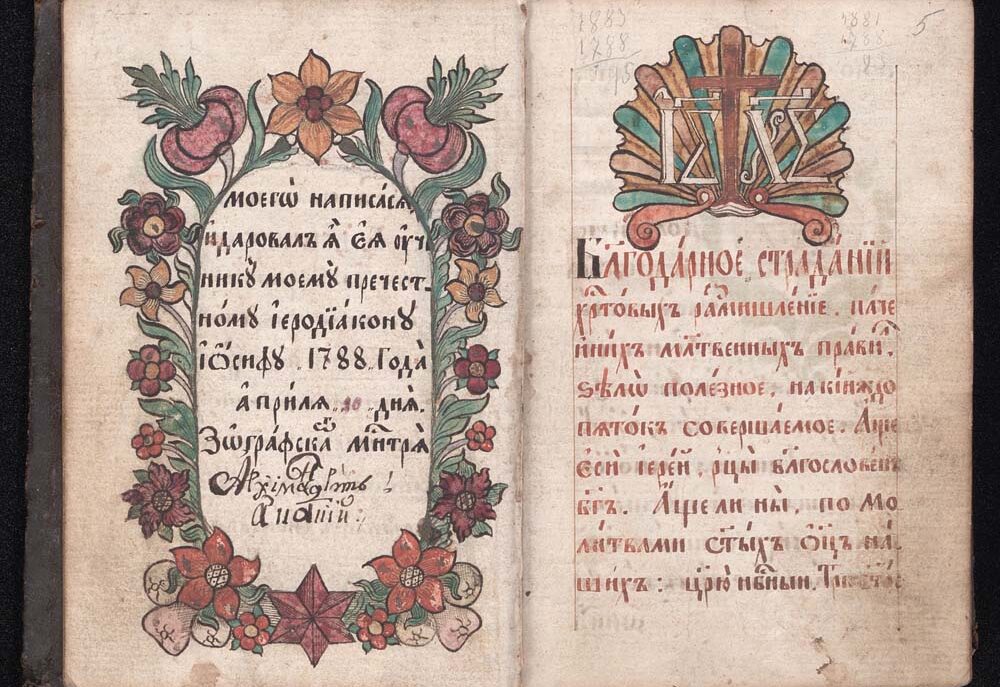 моегѡ написася
идаровалъ ѧ҆ єя ѹч҃
никꙋ моемꙋ пречест-
номꙋ їеродїакону
їѡсифу. 1788. Года
априля. 20. дня.
Зѡграфска Мнтря
Архїмандритъ
Ананїй
1883
1788
1881
1788
83
5
ІС ХС
Благода́рное страданїй
хрⷭ҇товыхъ размишле́нїе. па́че
и҆ны́хъ мл҃твенныхъ пра́вил̾.
ѕѣлѡ̀ поле́зное, на кі́йждо
пято́къ соверша́емое. А҆́ще
є҆сѝ і҆ере́й, рцы̀ бл҃гослове́нъ
бг҃ъ. А҆́ще ли нѝ, по мо
ли́твами ст҃ы́хъ ѻ҆ц҃ъ на́
шихъ: цр҃ю̀ нбⷭ҇ный. Трист҃о́е